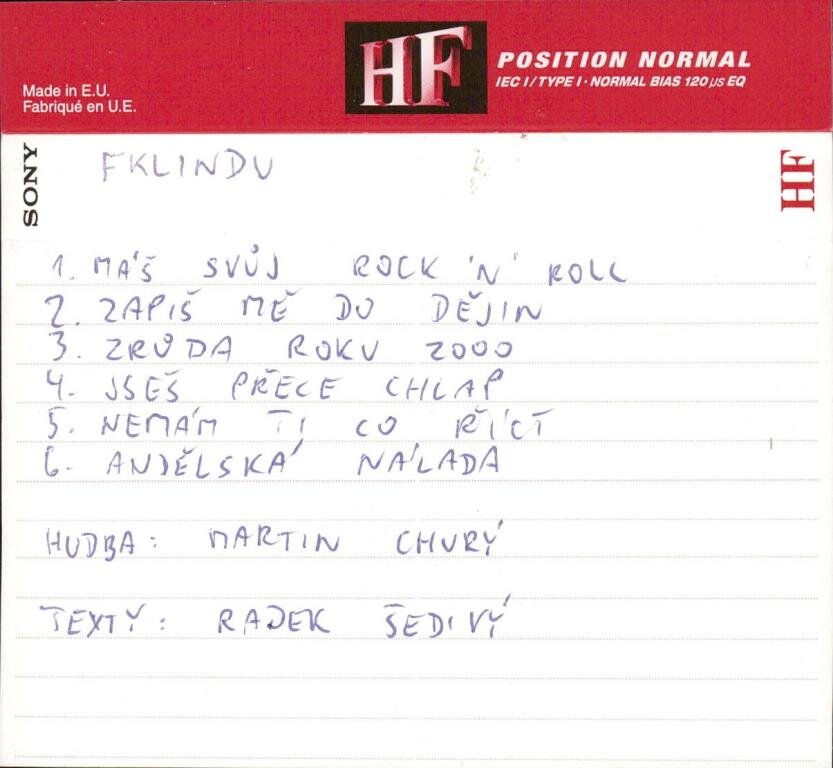 HF
POSITION NORMAL
IEC I/TYPE I · NORMAL BIAS 120 µs EQ
Made in E.U.
Fabriqué en U.E.
SONY
HF
FKLINDU
1. MÁŠ SVŮJ ROCK 'N' ROLL
2. ZAPIŠ MĚ DO DĚJIN
3. ZRŮDA ROKU 2000
4. JSEŠ PŘECE CHLAP
5. NEMÁM TI CO ŘÍCT
6. ANDĚLSKÁ NÁLADA
HUDBA: MARTIN CHURÝ
TEXTY: RADEK ŠEDIVÝ